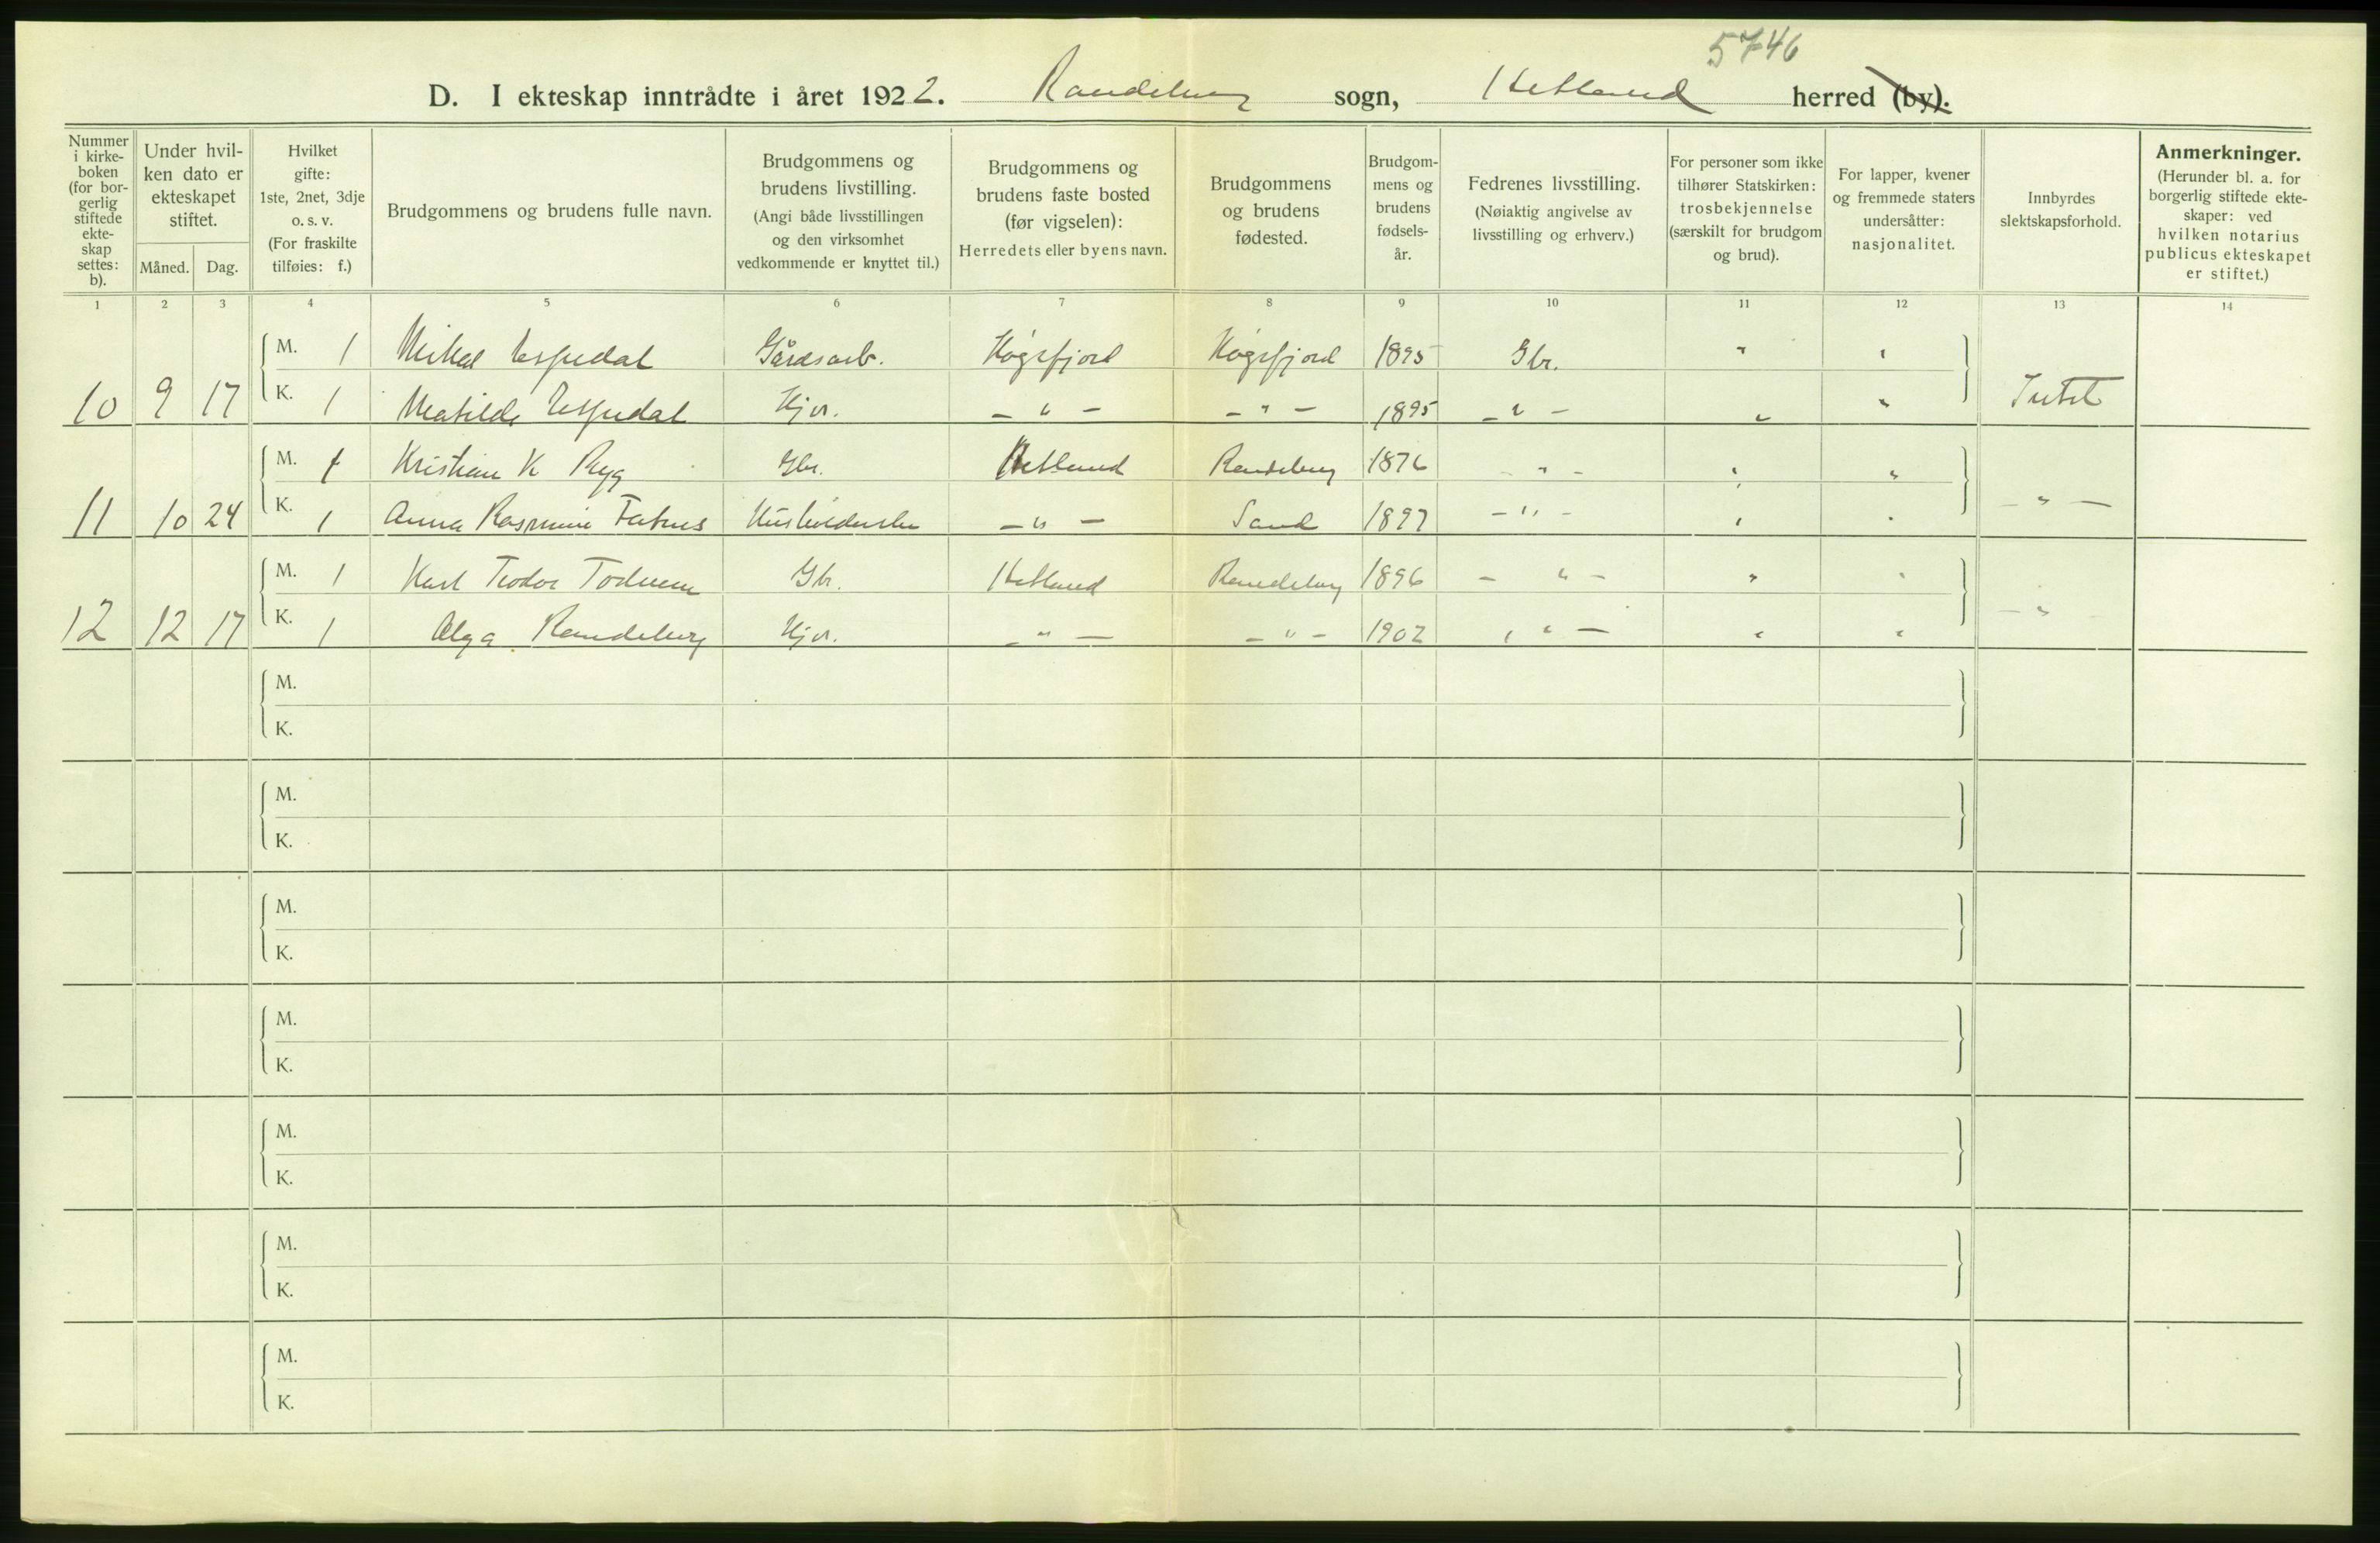 5746
D. I ekteskap inntrådte i året 1922. Randeberg sogn, Hetland herred (by).
Nummer i kirkeboken (for borgerlig stiftede ekteskap settes: b).
Under hvilken dato er ekteskapet stiftet.
Måned. Dag.
Hvilket gifte: 1ste, 2net, 3dje o. s. v. (For fraskilte tilføies: f.)
Brudgommens og brudens fulle navn.
Brudgommens og brudens livstilling. (Angi både livsstillingen og den virksomhet vedkommende er knyttet til.)
Brudgommens og brudens faste bosted (før vigselen): Herredets eller byens navn.
Brudgommens og brudens fødested.
Brudgommens og brudens fødselsår.
Fedrenes livsstilling. (Nøiaktig angivelse av livsstilling og erhverv.)
For personer som ikke tilhører Statskirken: trosbekjennelse (særskilt for brudgom og brud).
For lapper, kvener og fremmede staters undersåtter: nasjonalitet.
Innbyrdes slektskapsforhold.
Anmerkninger. (Herunder bl. a. for borgerlig stiftede ekteskaper: ved hvilken notarius publicus ekteskapet er stiftet.)
1 2 3 4 5 6 7 8 9 10 11 12 13 14
M. 1 Mikal Espedal Gårdsarb. Høgsfjord Høgsfjord 1895 Gbr. " "
10 9 17 K. 1 Matilde Espedal Hjv. - " - - " - 1895 - " - " " Intet
M. 1 Kristian K Ryg Gbr. Hetland Randeberg 1876 - " - " "
11 10 24 K. 1 Anna Rasmine Fatnes Husholderske - " - Sand 1897 - " - " " - " -
M. 1 Karl Teodor Todnem Gbr. Hetland Randeberg 1896 - " - " "
12 12 17 K. 1 Olga Randeberg Hjv. - " - - " - 1902 " " - " " - " -
M.
K.
M.
K.
M.
K.
M.
K.
M.
K.
M.
K.
M.
K.